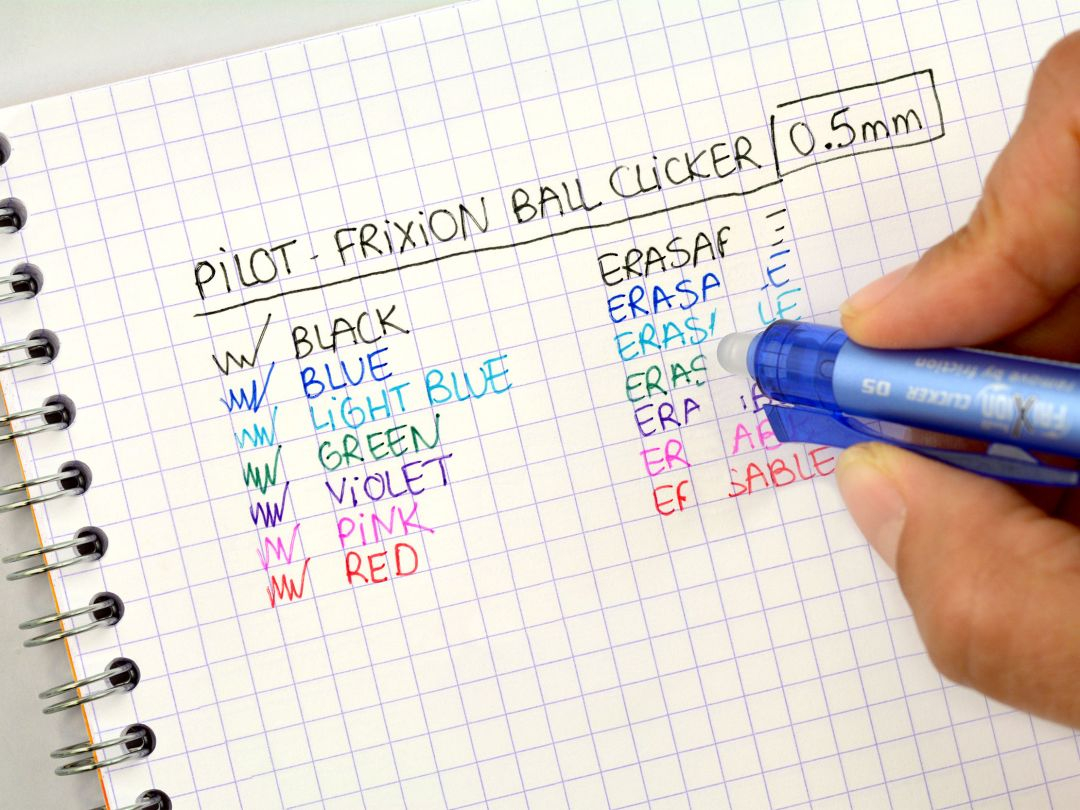 PiLOT - FRiXiON BALL CLiCKER 0.5mm
BLACK
BLUE
LiGHT BLUE
GREEN
ViOLET
PiNK
RED
ERASA E
ERASA E
ERAS LE
ERAS
ERA
ER AB
E SABLE
FRiXion CLICKER 05
Remove by friction